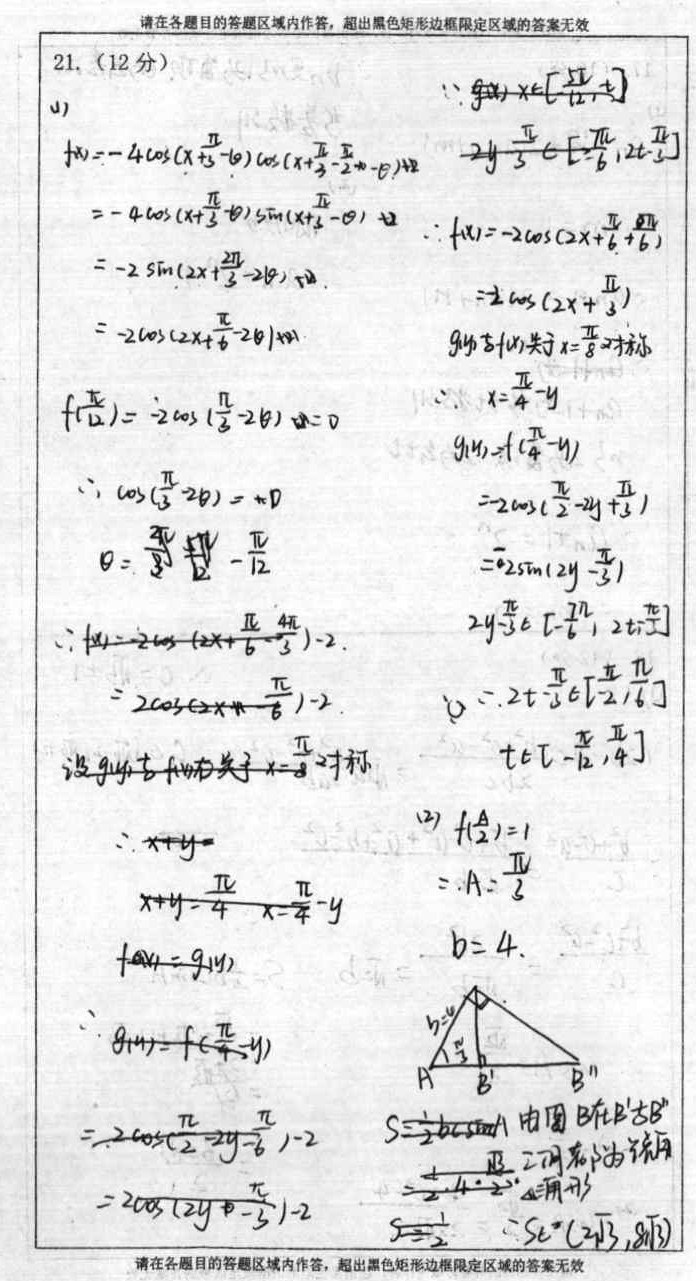 请在各题目的答题区域内作答，超出黑色矩形边框限定区域的答案无效
21.（12分）
(1)
f(x)=-4cos(x+π/3-θ)cos(x+π/3-π/2-θ)
=-4cos(x+π/3-θ)sin(x+π/3-θ)
=-2sin(2x+2π/3-2θ)
=-2cos(2x+π/6-2θ)
f(π/12)=-2cos(π/3-2θ)=0
∴cos(π/3-2θ)=0
θ= -π/12
∴f(x)=-2cos(2x+π/6-4π/3)-2.
=2cos(2x-π/6)-2.
设g(y)与f(x)关于x=π/8对称
∴x+y=
x+y=π/4 x=π/4-y
f(x)=g(y)
∴g(y)=f(π/4-y)
=2cos(π/2-2y-π/6)-2
=2cos(2y-π/3)-2
∵g(x) x∈[5π/12,t]
2y-π/3∈[-7π/6,2t-π/3]
∴f(x)=-2cos(2x+π/6+π/6)
=-2cos(2x+π/3)
g(y)与f(x)关于x=π/8对称
∴x=π/4-y
g(y)=f(π/4-y)
=-2cos(π/2-2y+π/3)
=2sin(2y-π/3)
2y-π/3∈[-7π/6,2t-π/3]
∴2t-π/3∈[-π/2,π/6]
t∈[-π/12,π/4]
(2) f(A/2)=1
=A=π/3
b=4.
b=4
π/3
A B' B"
S=1/2bcsinA 由图B在B'与B"
1/2·4·√3/2 之间者β为锐角
△三角形
S=1/2 ∴S∈(2√3,8√3)
请在各题目的答题区域内作答，超出黑色矩形边框限定区域的答案无效